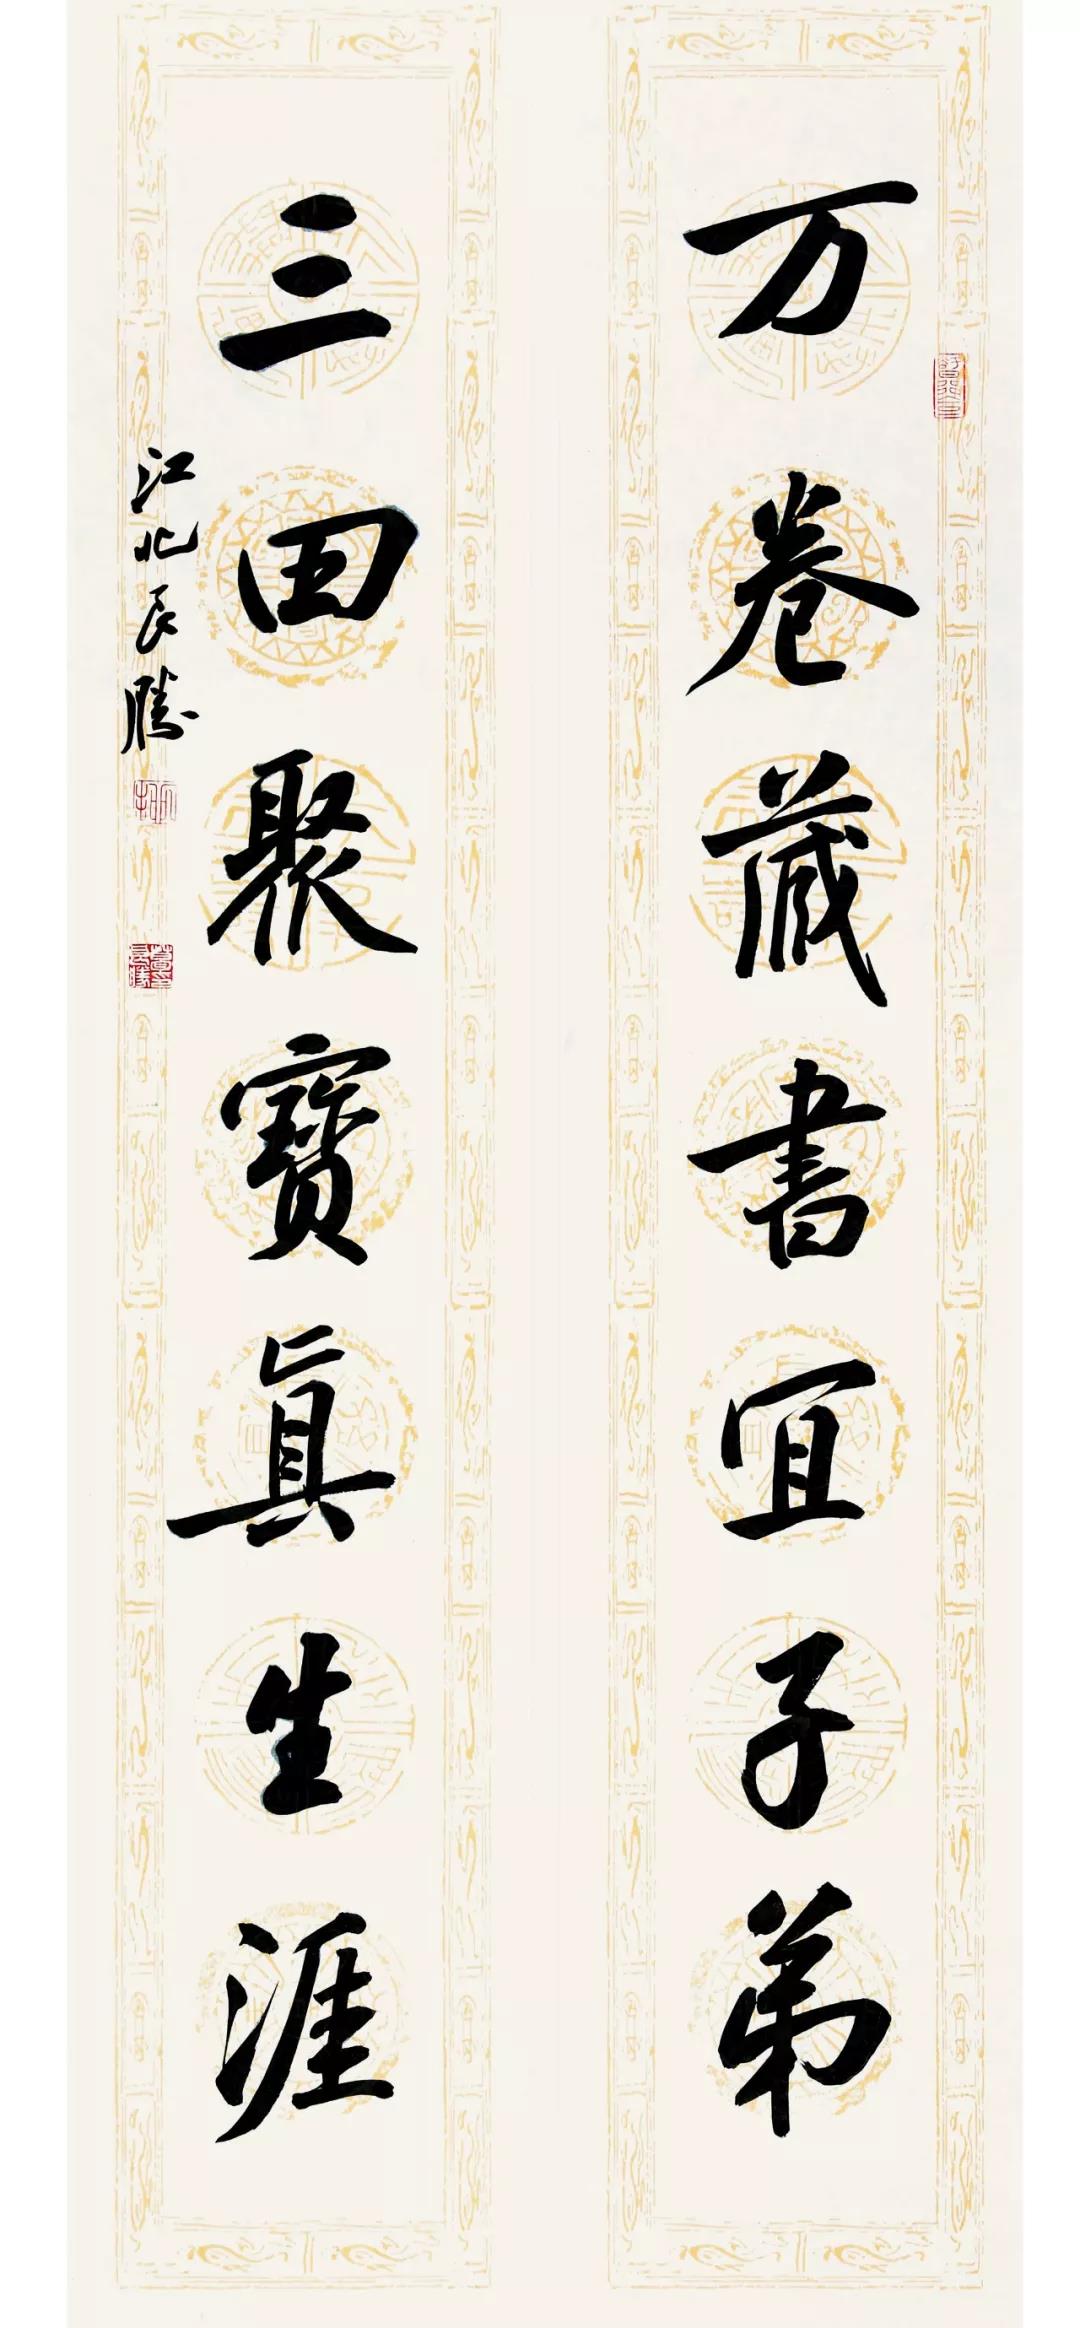 万卷藏书宜子弟
三田聚寳真生涯
江北長勝